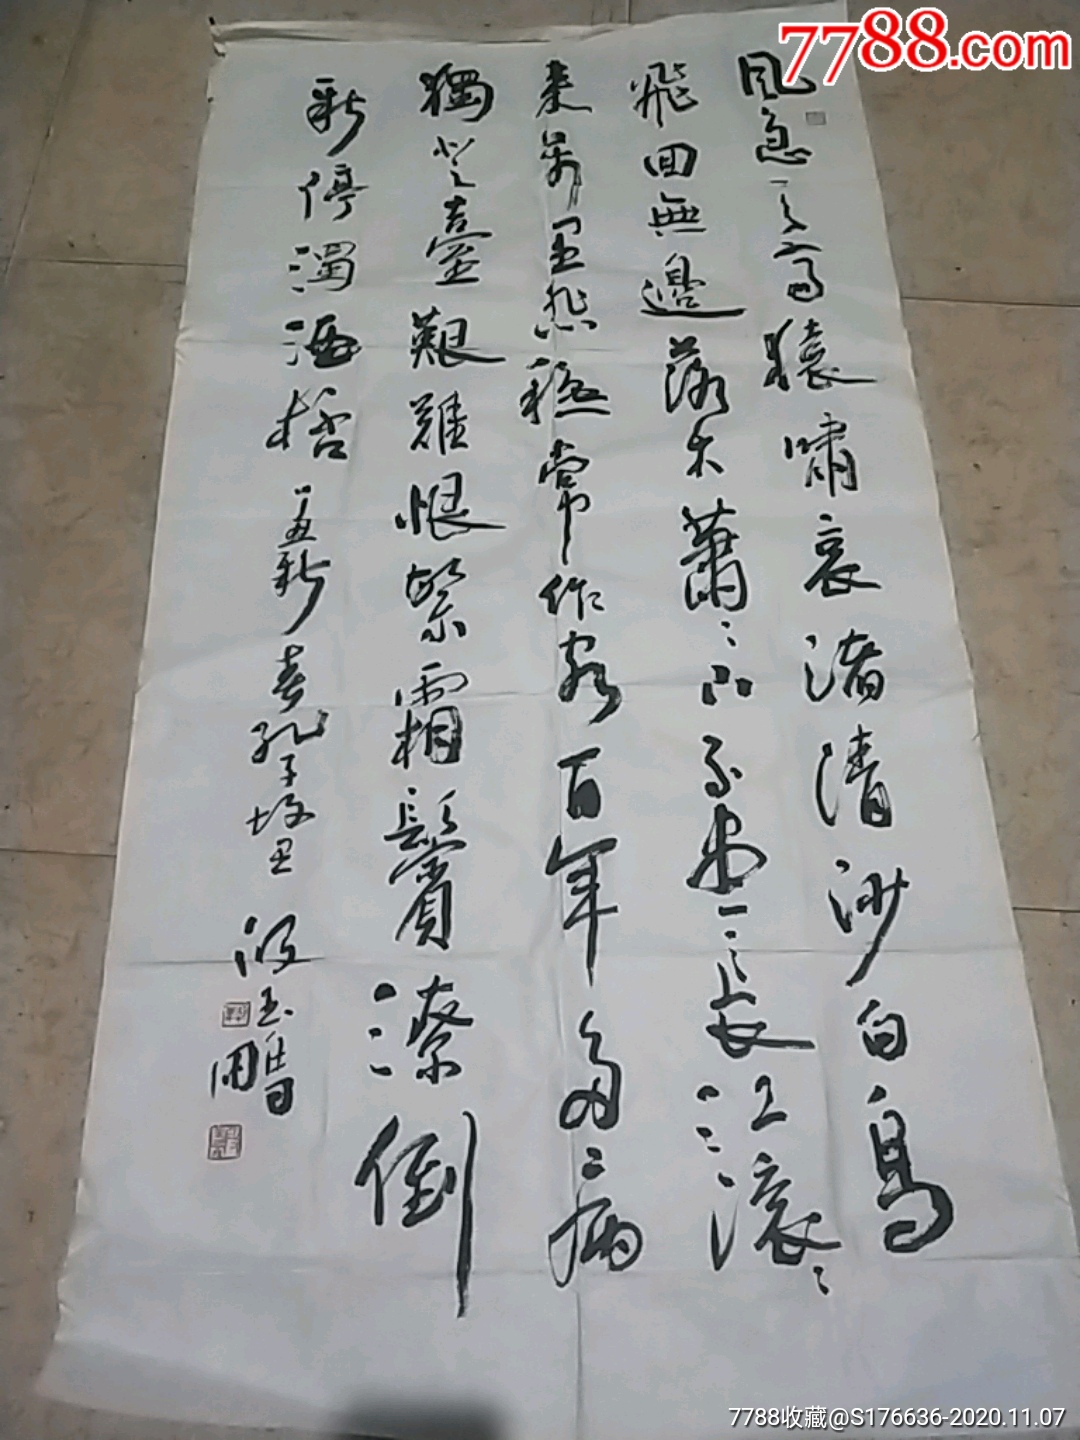 7788.com
風急天高猿嘯哀渚清沙白鳥
飛回無邊落木蕭〻下不盡長江滾〻
来萬里悲秋常作客百年多病
獨登臺艱難恨繁霜鬢潦倒
新停濁酒桮 新春孔子故里 段玉鵬
7788收藏@S176636-2020.11.07